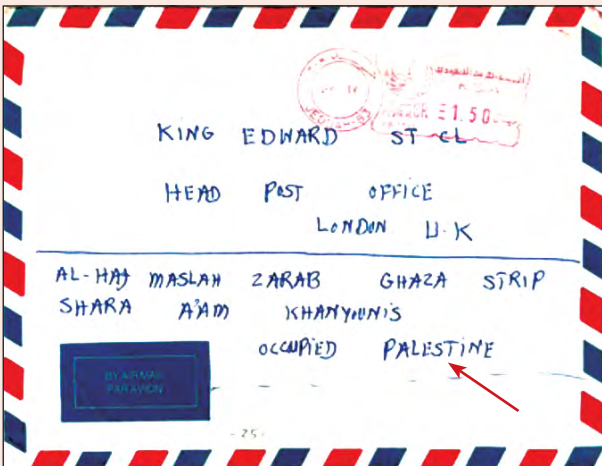 E1.50
KING EDWARD ST CL
HEAD POST OFFICE
LONDON U.K
AL-HAJ MASLAH ZARAB GHAZA STRIP
SHARA A'AM KHANYOUNIS
OCCUPIED PALESTINE
BY AIR MAIL
PAR AVION
-25-